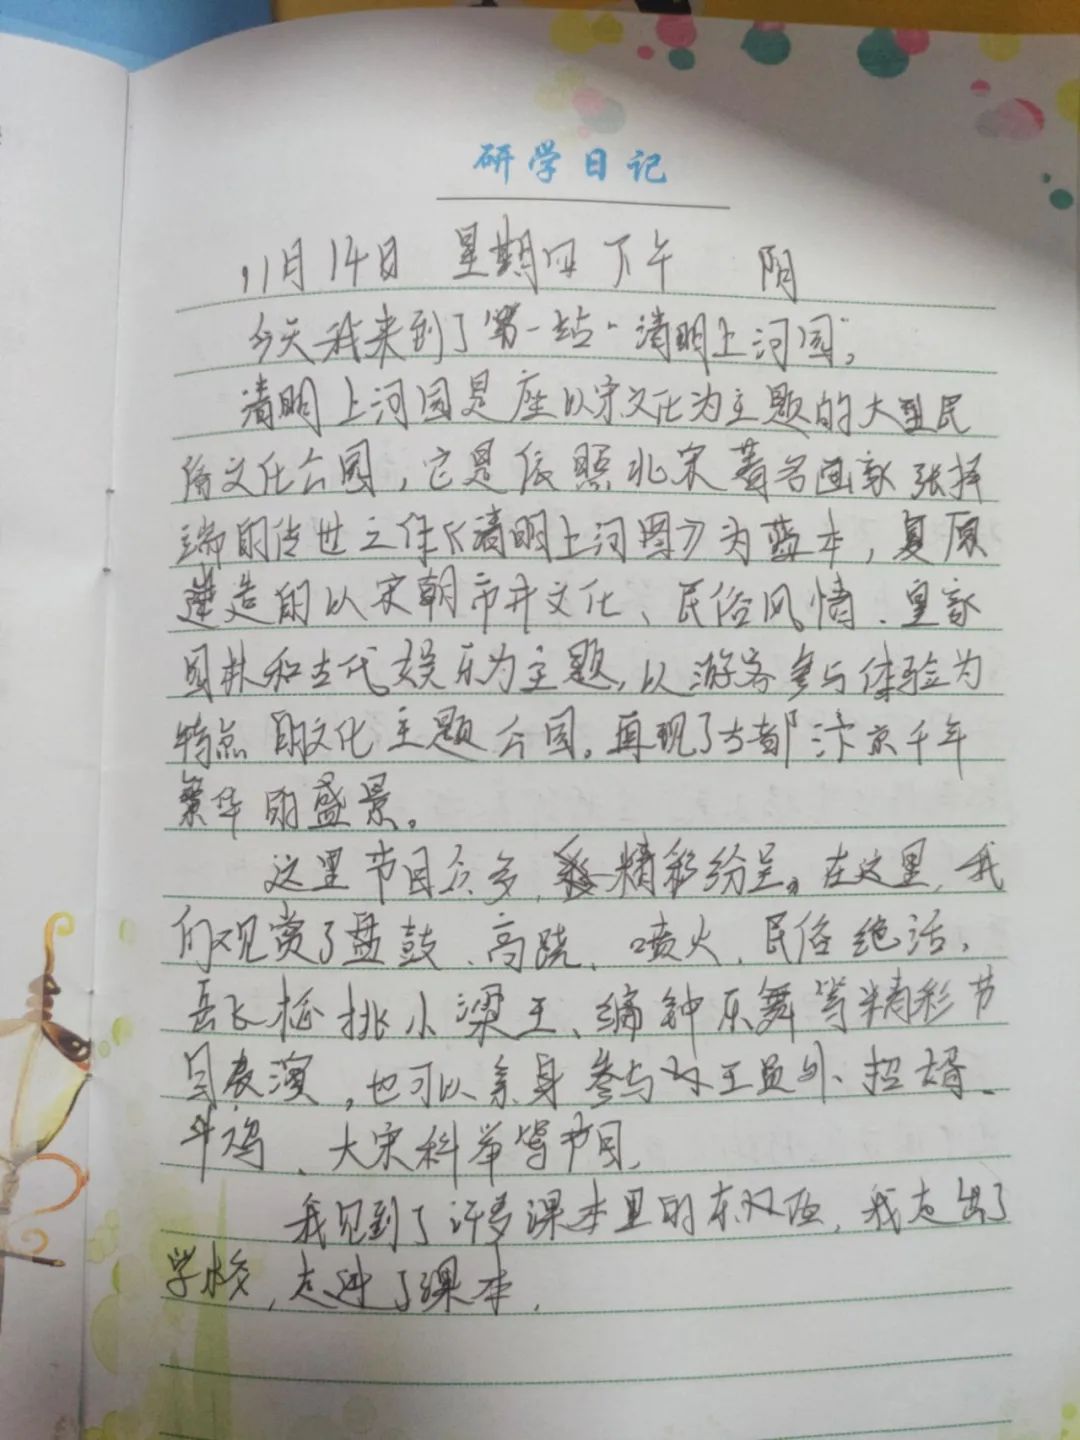 研学日记
11月14日 星期四下午 阴
今天我来到了第一站“清明上河园”,
清明上河园是座以宋文化为主题的大型民
俗文化公园，它是依照北宋著名画家张择
端的传世之作《清明上河图》为蓝本，复原
建造的以宋朝市井文化、民俗风情、皇家
园林和古代娱乐为主题，以游客参与体验为
特点的文化主题公园。再现了古都汴京千年
繁华的盛景。
这里节目众多，精彩纷呈。在这里，我
们观赏了盘鼓、高跷、喷火、民俗绝活、
岳飞枪挑小梁王、编钟乐舞等精彩节
目表演，也可以亲身参与王员外招婿、
斗鸡、大宋科举等节目。
我见到了许多课本里的东西，我走出了
学校，走进了课本．